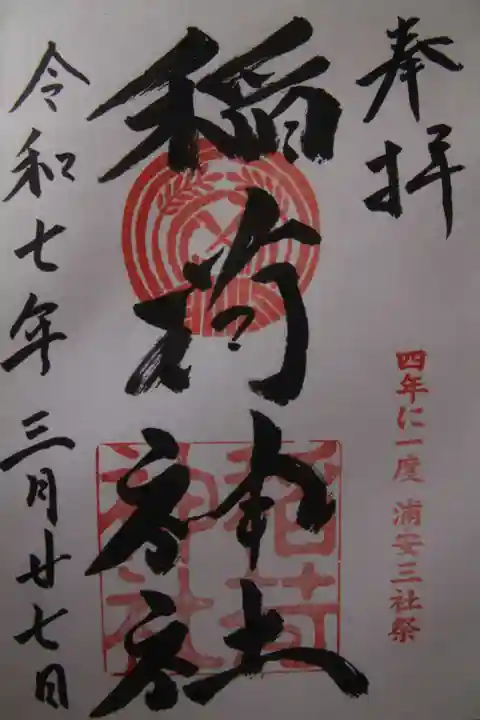 奉拝
四年に一度 浦安三社祭
稲荷神社
稲荷
神社
令和七年三月廿七日